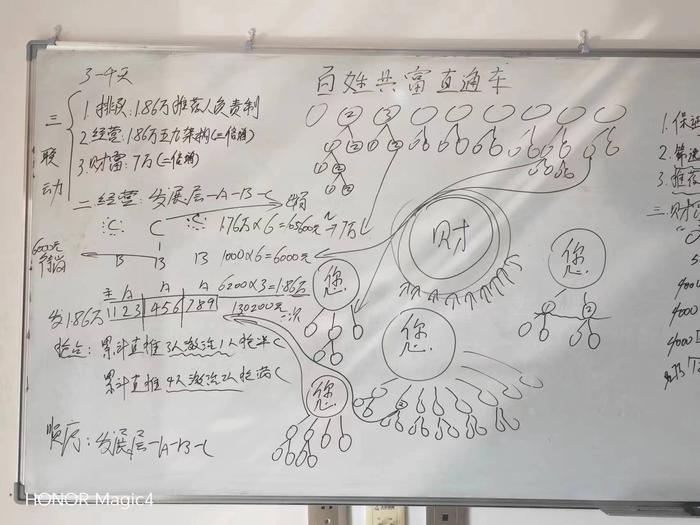 百姓共富直通车
3-4天
三联动
1.排队:1.86万推荐人负责制
2.经营:1.86万五力架构(二倍增)
3.财富:7万(二倍增)
二.经营:发展层-A-B-C
C C C
1000×6=6000元
6000元
B B B
主A A A
6200×3=1.86万
发1.86万
1 2 3 4 5 6 7 8 9
130200元一次
抢占:累计直推3人激活1人抢半C
累计直推4人激活2人抢满C
顺序:发展层-A-B-C
② ③
财
您
您
您
您
① ②
1.保证
2.筛选
3.推荐
三.财
4000
4000
4000
HONOR Magic4